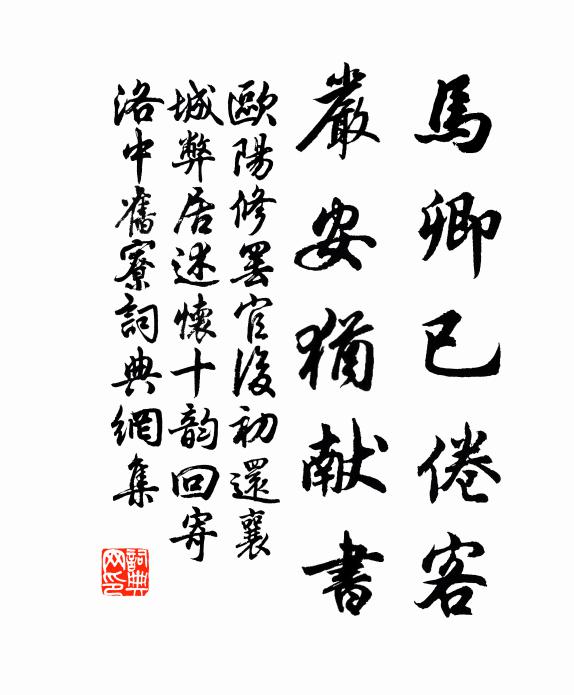 馬卿已倦客
嚴安猶献書
歐陽修罢官後初還襄
城弊居述懷十韵回寄
洛中舊寮詞典網集
詞典
网印